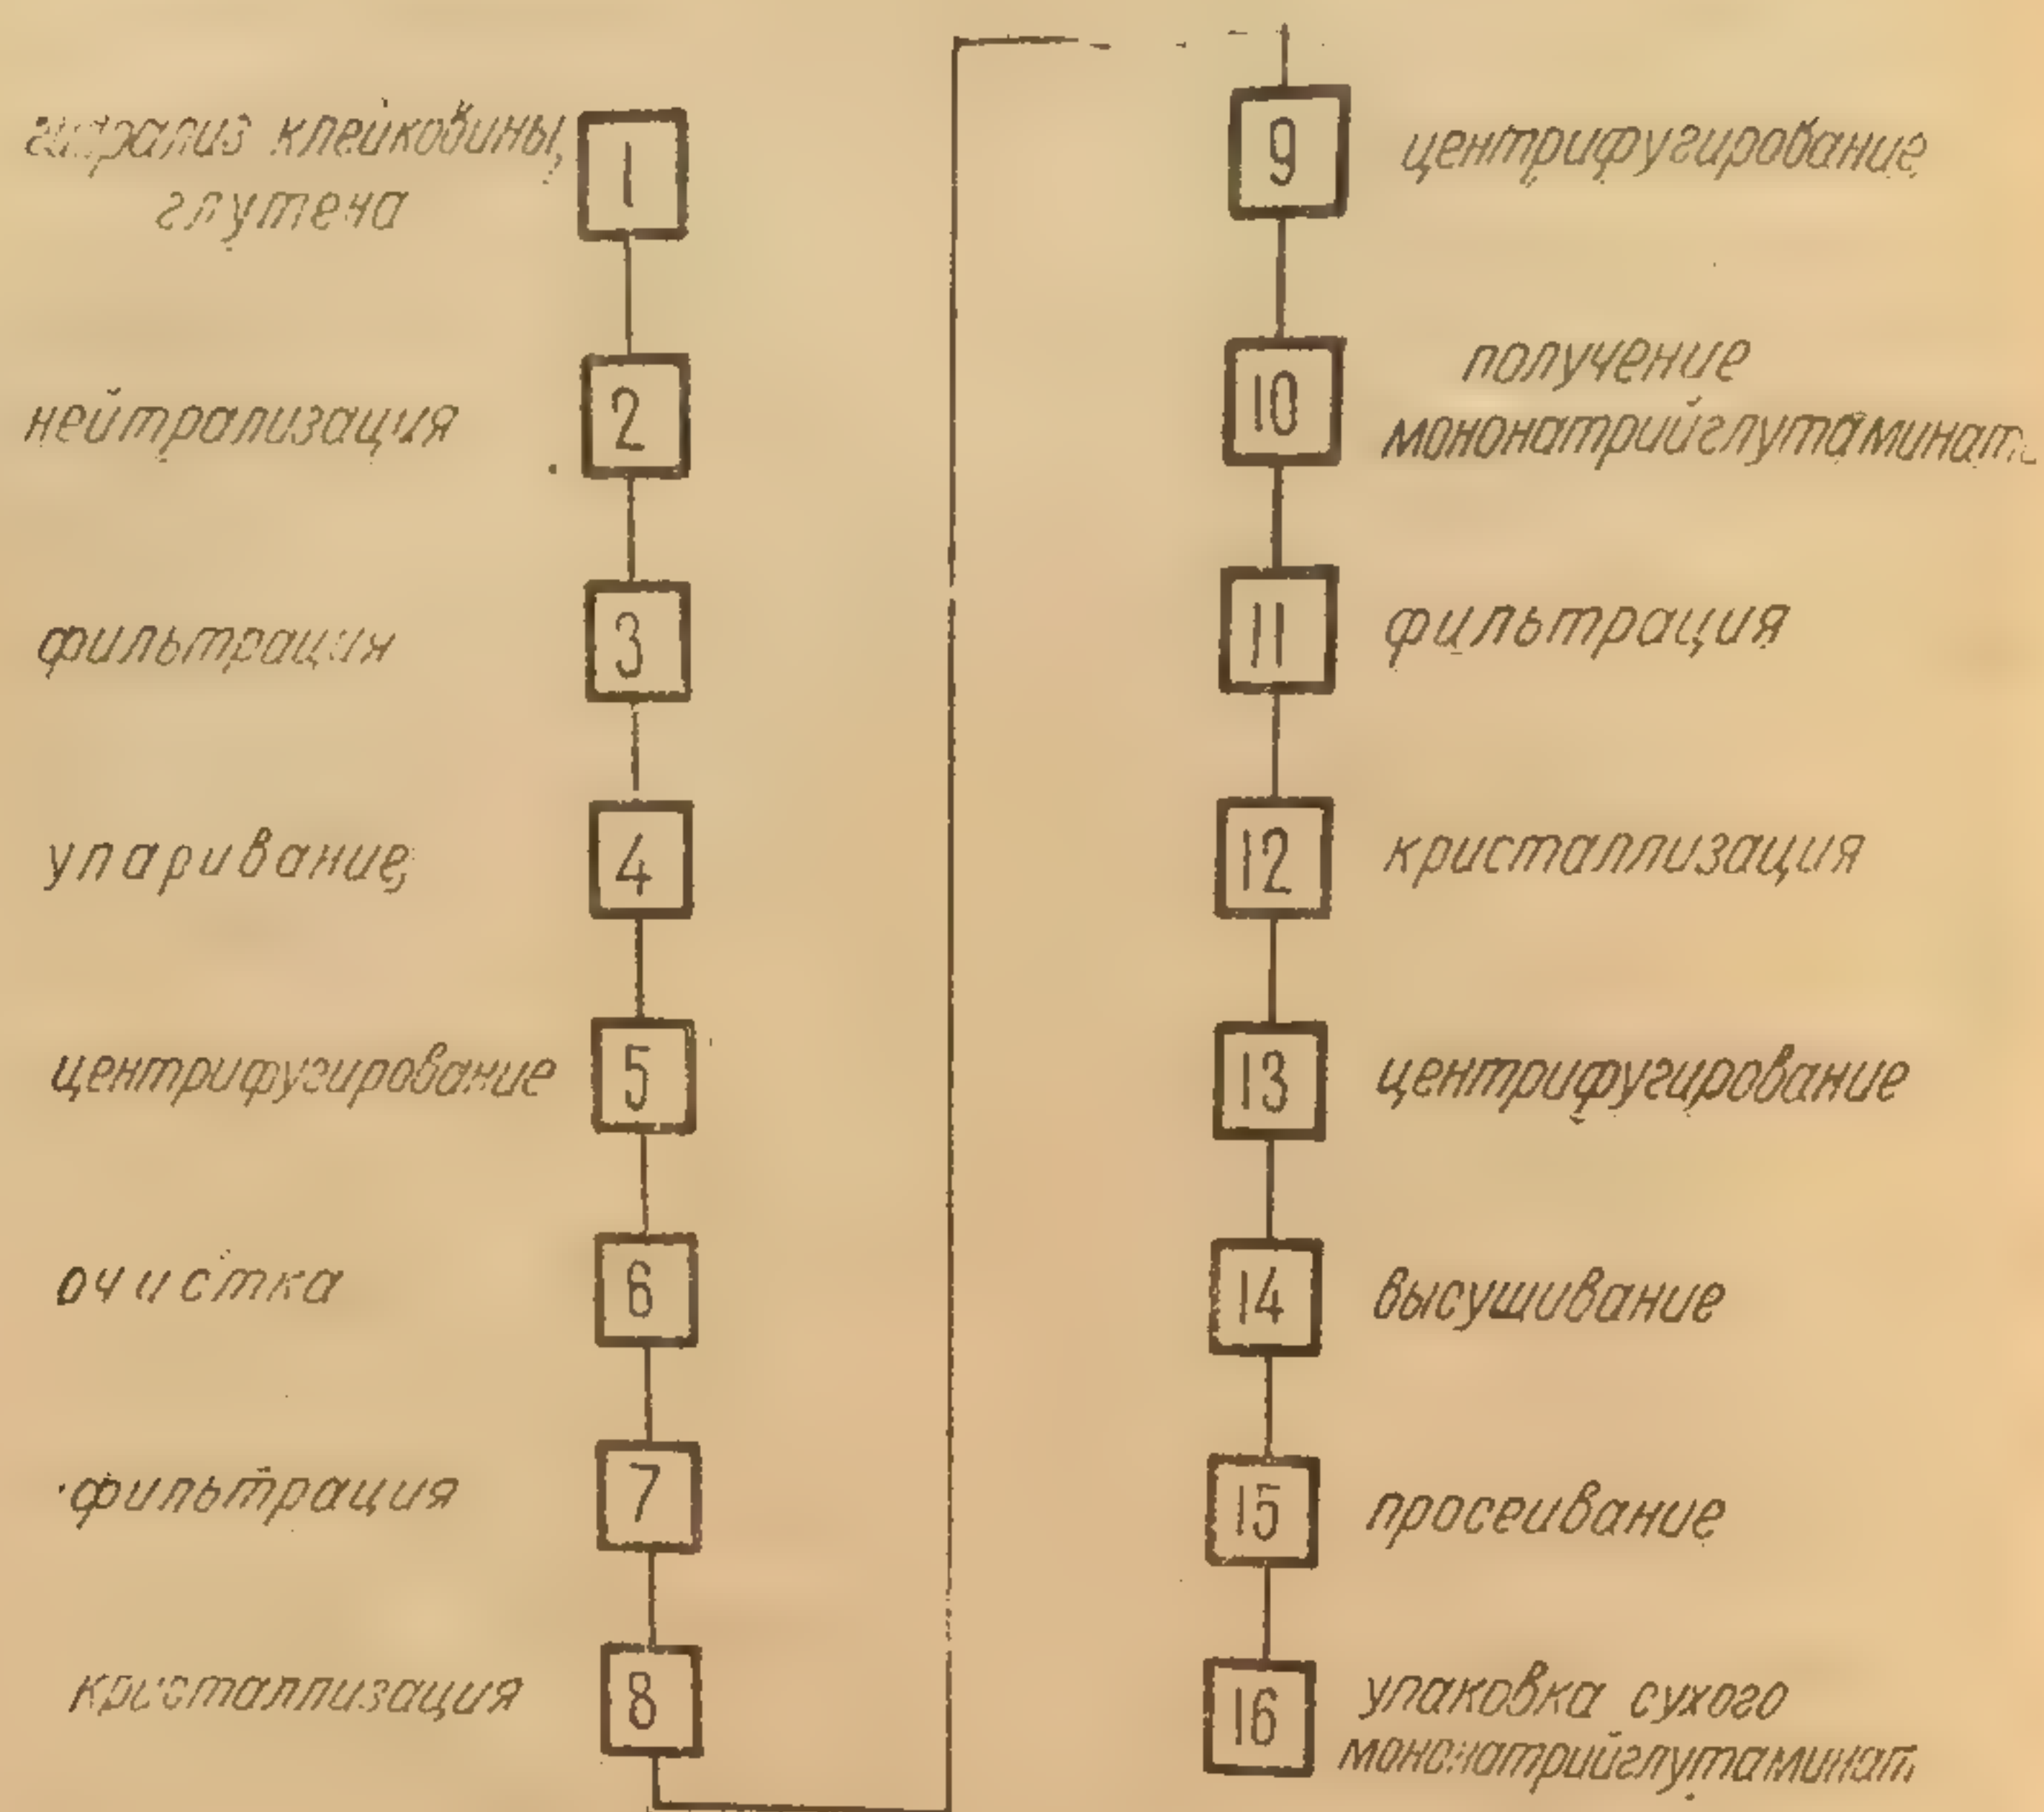 гидрализ клейковины,
глутена
1
нейтрализация
2
фильтрация
3
упаривание
4
центрифугирование
5
очистка
6
фильтрация
7
кристаллизация
8
9
центрифугирование
10
получение
мононатрийглутамината
11
фильтрация
12
кристаллизация
13
центрифугирование
14
высушивание
15
просеивание
16
упаковка сухого
мононатрийглутамината